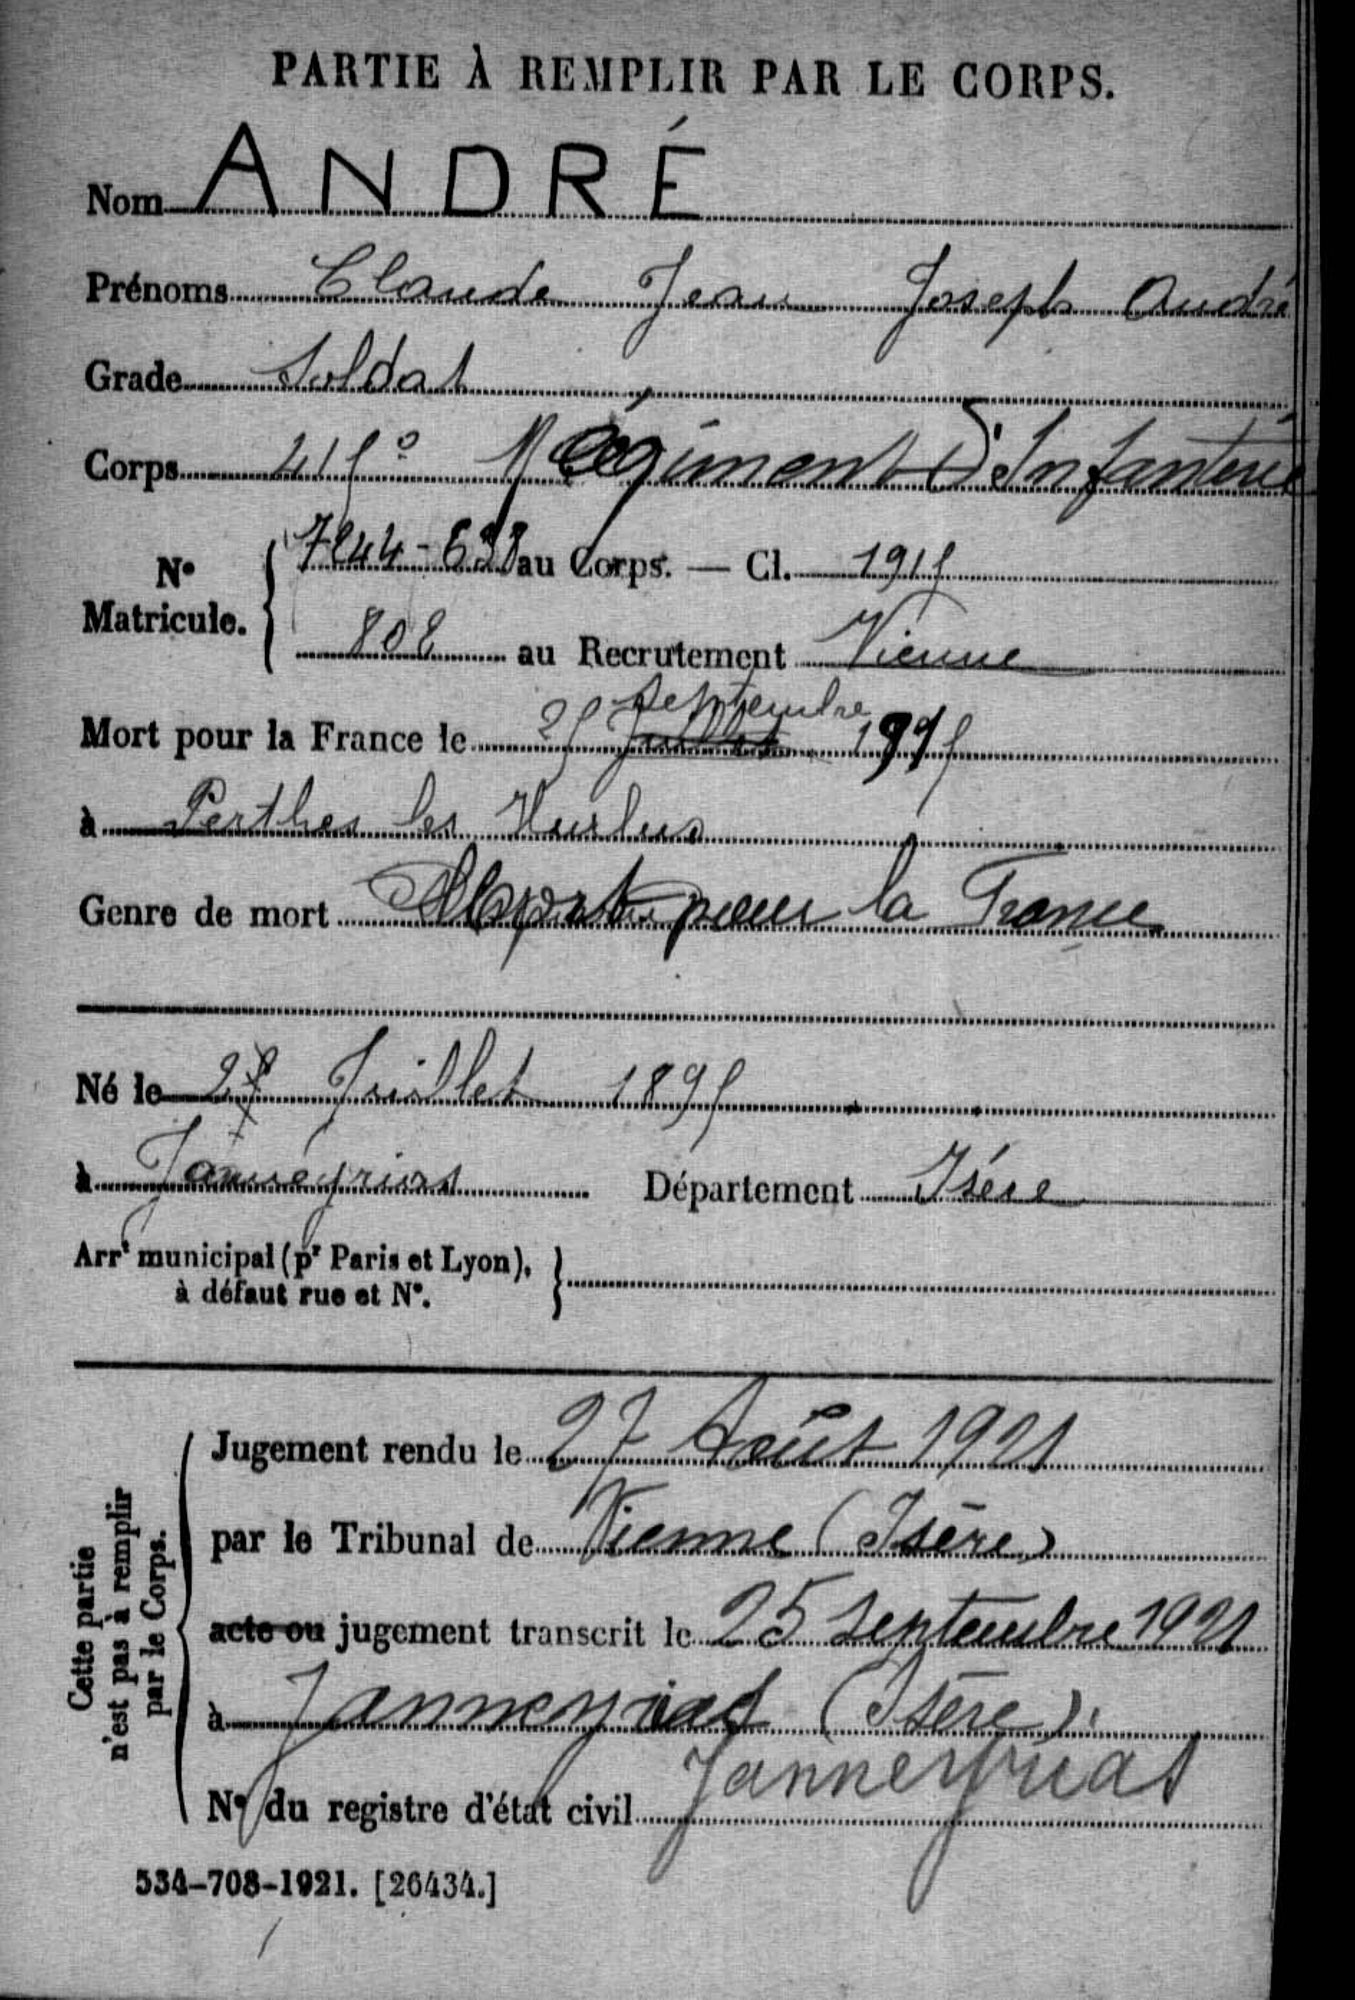 PARTIE À REMPLIR PAR LE CORPS.
Nom ANDRÉ
Prénoms Claude Jean Joseph André
Grade Soldat
Corps 415e Régiment d'Infanterie
N° Matricule. { 7244-638 au Corps. — Cl. 1915
808 au Recrutement Vienne
septembre
Mort pour la France le 25 Juillet 1915
à Perthes les Hurlus
Genre de mort Mort pour la France
Né le 27 Juillet 1895
à Janneyrias Département Isère
Arrt municipal (pr Paris et Lyon), }
à défaut rue et N°.
Cette partie
n'est pas à remplir
par le Corps.
Jugement rendu le 27 Août 1921
par le Tribunal de Vienne (Isère)
acte ou jugement transcrit le 25 septembre 1921
à Janneyrias (Isère).
Janneyrias
N° du registre d'état civil
534-708-1921. [26434.]